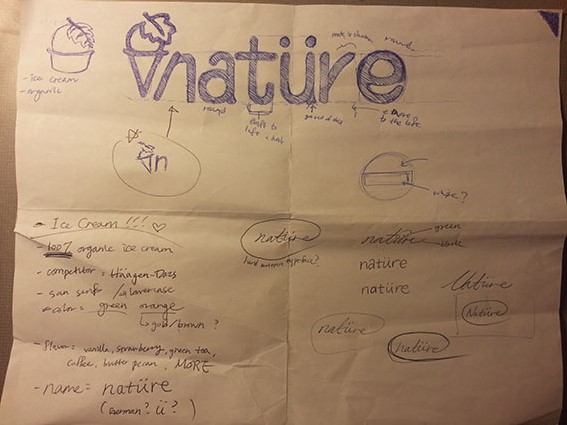 natüre
- Ice cream
- organic
round
round
shift to
left
to the left
n
white?
- Ice Cream!!!
- 100% organic ice cream
- competitor = Häagen-Dazs
- san serif / lowercase
- color = green orange
gold/brown?
- flavor = vanilla, strawberry, green tea,
coffee, butter pecan, MORE
- name = natüre
(German? ü?)
natüre
natüre
green
natüre
natüre
Natüre
Natüre
natüre
natüre